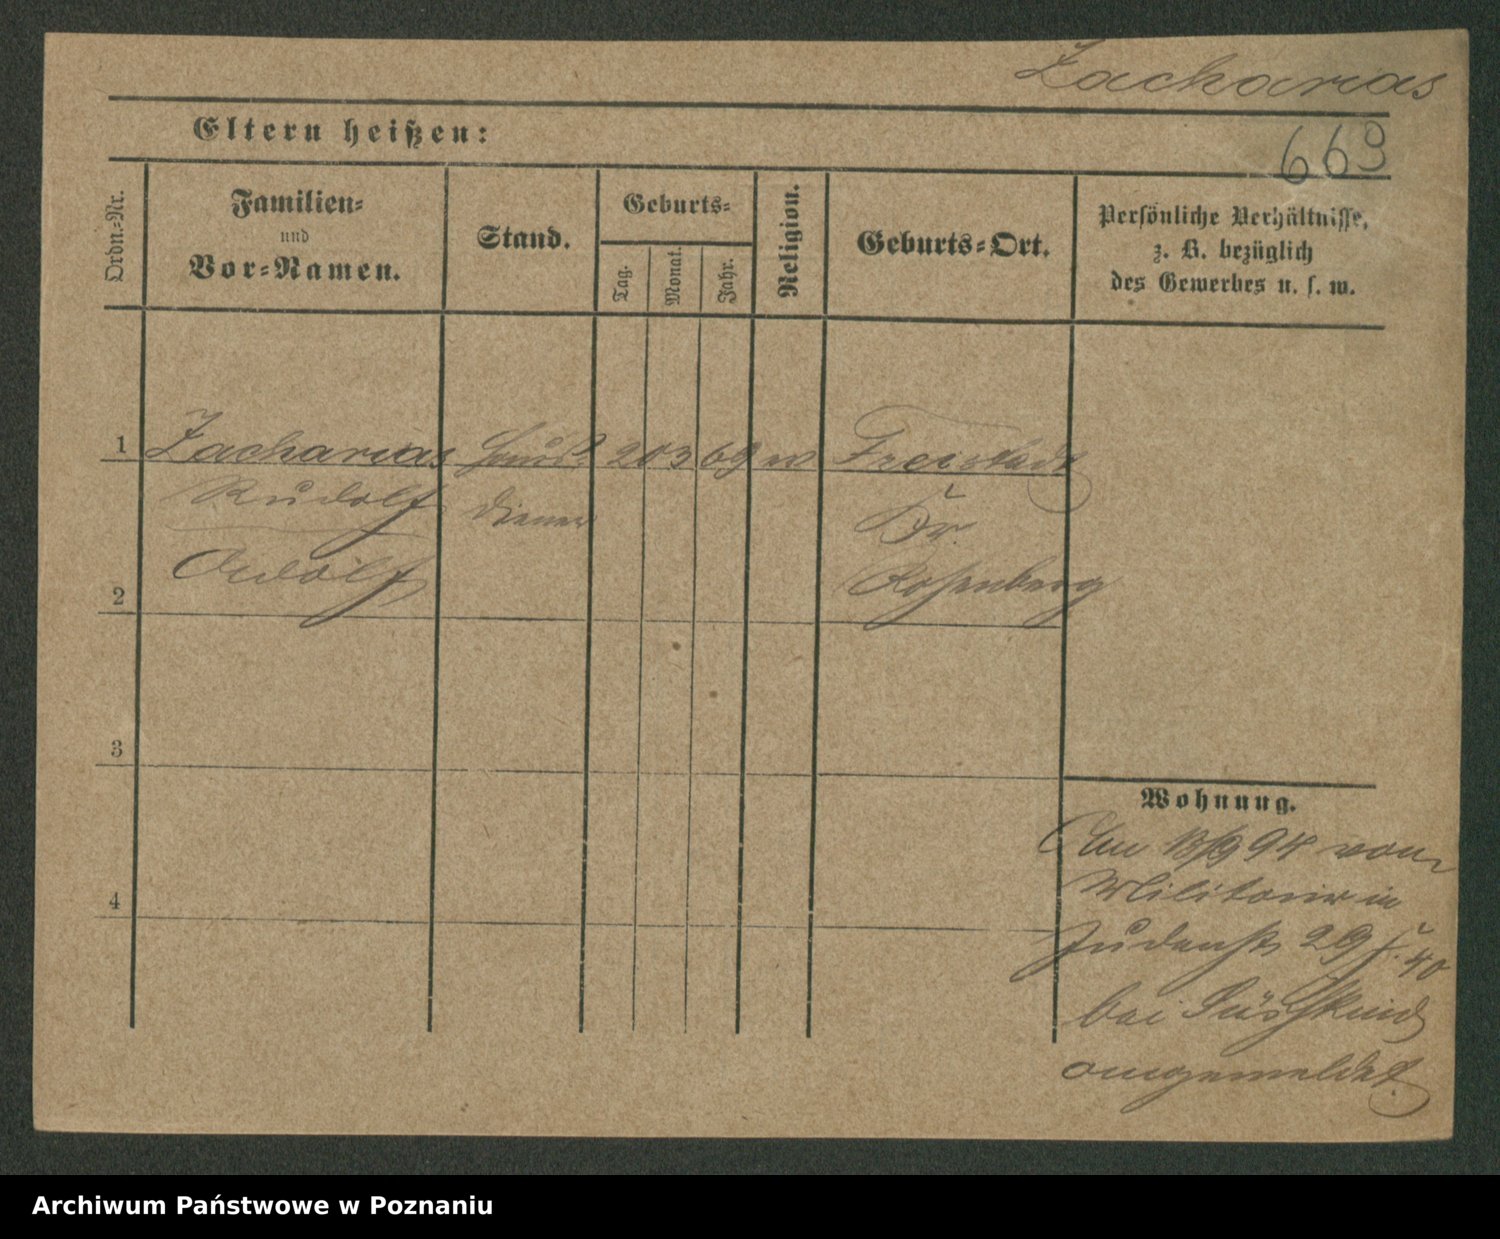 Zacharias
663
Eltern heißen:
Ordn.-Nr.
Familien-
und
Vor-Namen.
Stand.
Geburts-
Tag.
Monat.
Jahr.
Religion.
Geburts-Ort.
Persönliche Verhältnisse,
z. B. bezüglich
des Gewerbes u. s. w.
1 Zacharias Haus- 20 3 69 Freistadt
Rudolf diener Kr.
2 Adolf Rosenberg
3
4
Wohnung.
Am 13/9 94 vom
Militair in
Judenstr. 29
bei Süsskind
angemeldet.
Archiwum Państwowe w Poznaniu